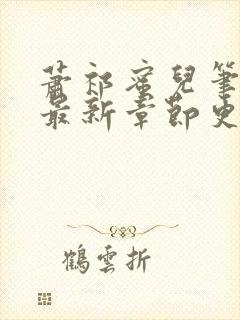 蕭祁蜜兒筆
最新章節史
鶴雲折